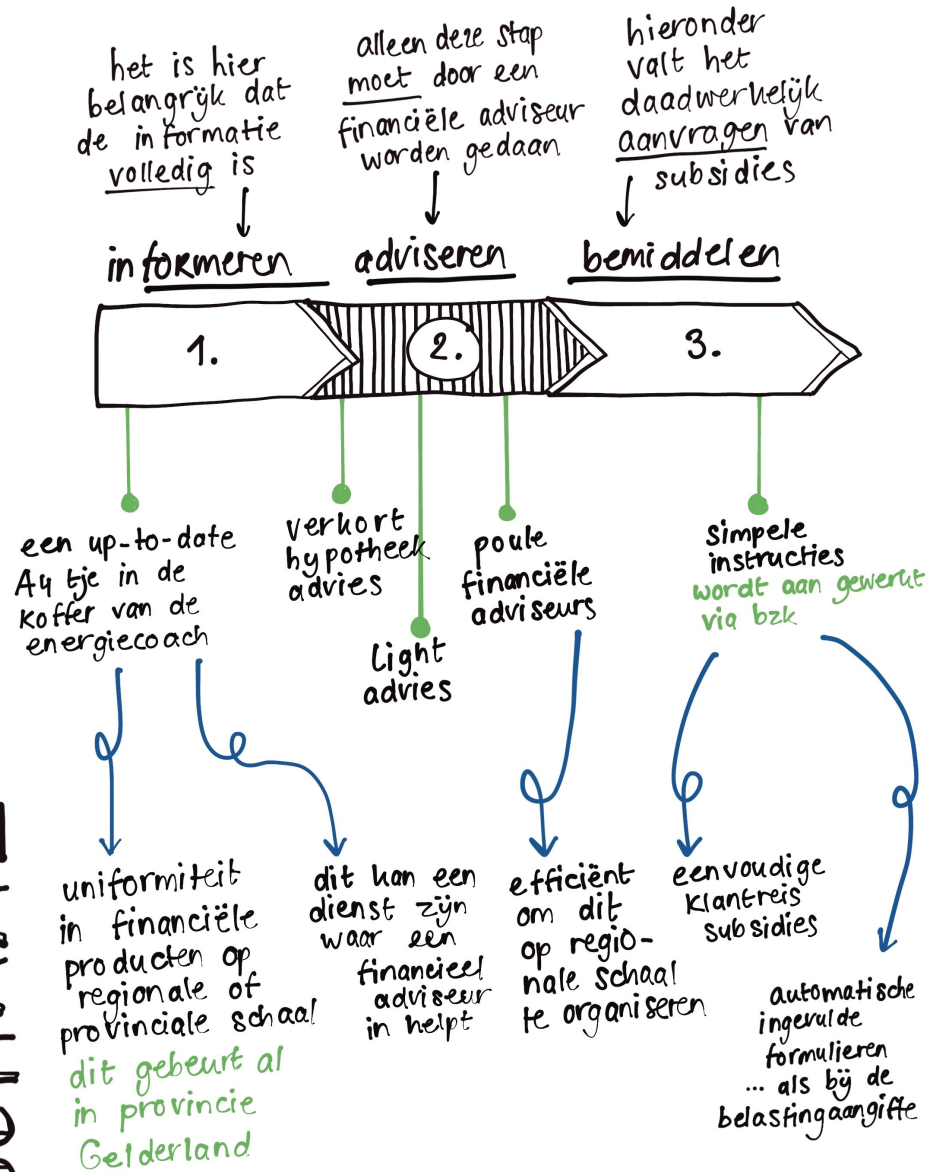 het is hier
belangrijk dat
de informatie
volledig is
alleen deze stap
moet door een
financiële adviseur
worden gedaan
hieronder
valt het
daadwerkelijk
aanvragen van
subsidies
informeren
adviseren
bemiddelen
1.
2.
3.
een up-to-date
A4 tje in de
koffer van de
energiecoach
verkort
hypotheek
advies
light
advies
poule
financiële
adviseurs
simpele
instructies
wordt aan gewerkt
via bzk
uniformiteit
in financiële
producten op
regionale of
provinciale schaal
dit gebeurt al
in provincie
Gelderland
dit kan een
dienst zijn
waar een
financieel
adviseur
in helpt
efficiënt
om dit
op regio-
nale schaal
te organiseren
eenvoudige
klantreis
subsidies
automatische
ingevulde
formulieren
... als bij de
belastingaangifte